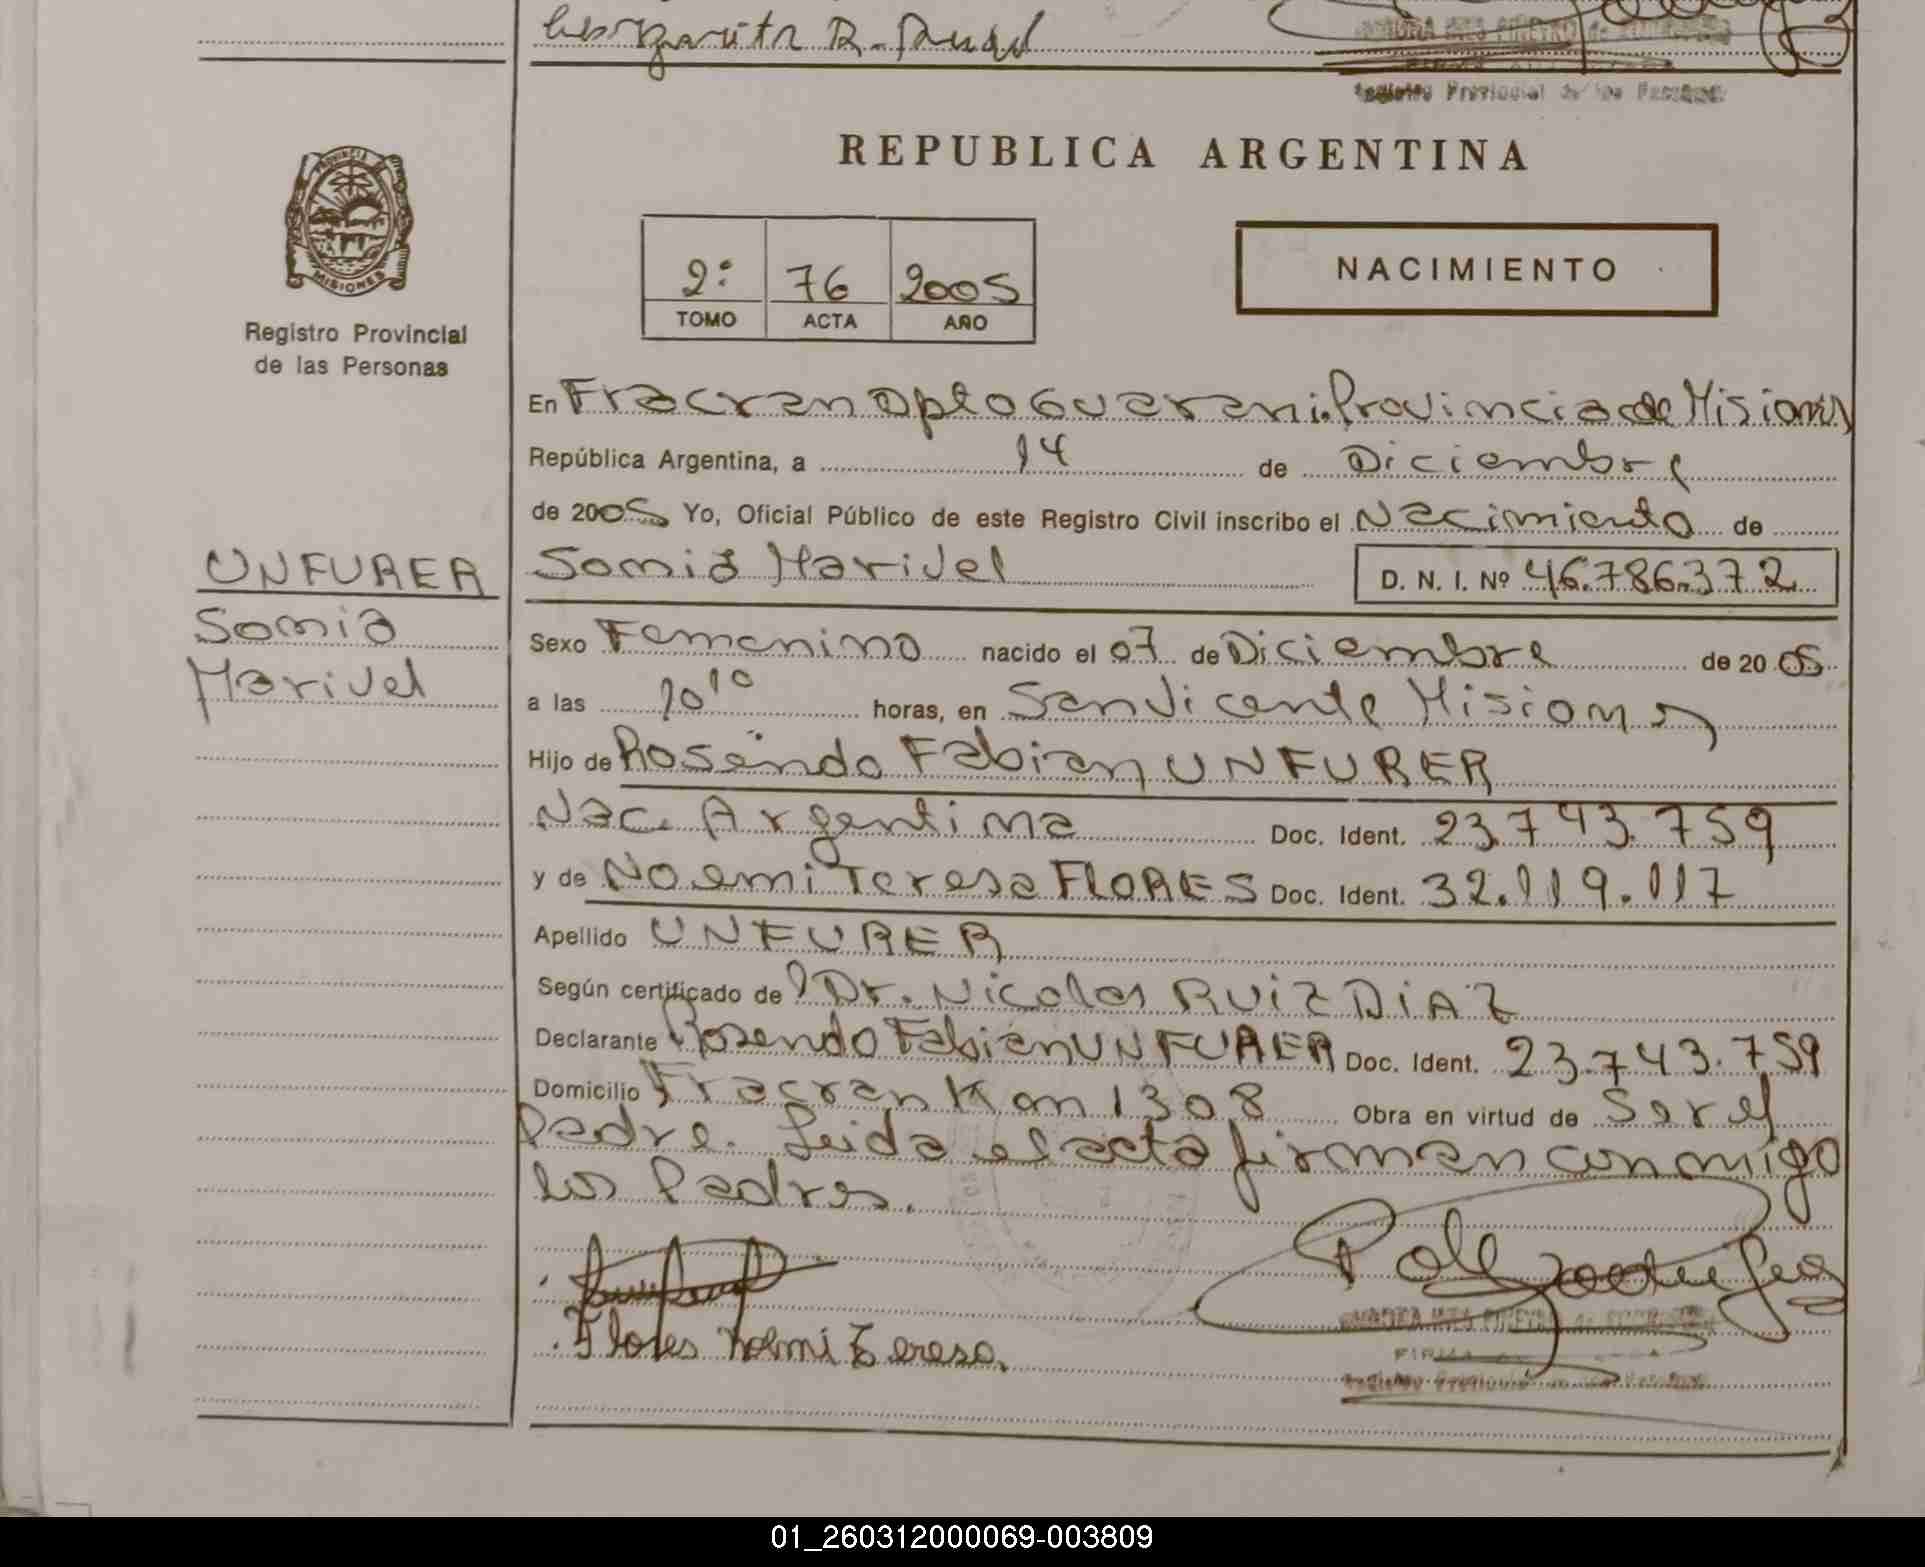 Margarita R.
Registro Provincial de las Personas
REPUBLICA ARGENTINA
PROVINCIA DE
MISIONES
Registro Provincial
de las Personas
2º 76 2005
TOMO ACTA AÑO
NACIMIENTO
En Fracran Dpto Guarani. Provincia de Misiones
República Argentina, a 14 de Diciembre
de 2005 Yo, Oficial Público de este Registro Civil inscribo el Nacimiento de
UNFURER
Sonia
Marivel
Sonia Marivel D. N. I. Nº 46.786.372
Sexo Femenino nacido el 07 de Diciembre de 2005
a las 10¹⁰ horas, en San Vicente Misiones
Hijo de Rosendo Fabian UNFURER
Nac. Argentina Doc. Ident. 23.743.759
y de Noemi Teresa FLORES Doc. Ident. 32.119.117
Apellido UNFURER
Según certificado de Dr. Nicolas RUIZ DIAZ
Declarante Rosendo Fabian UNFURER Doc. Ident. 23.743.759
Domicilio Fracran Km 1308 Obra en virtud de Ser el
Padre. Leida el acta firman conmigo
los Padres.
Flores Noemi Teresa.
01_260312000069-003809